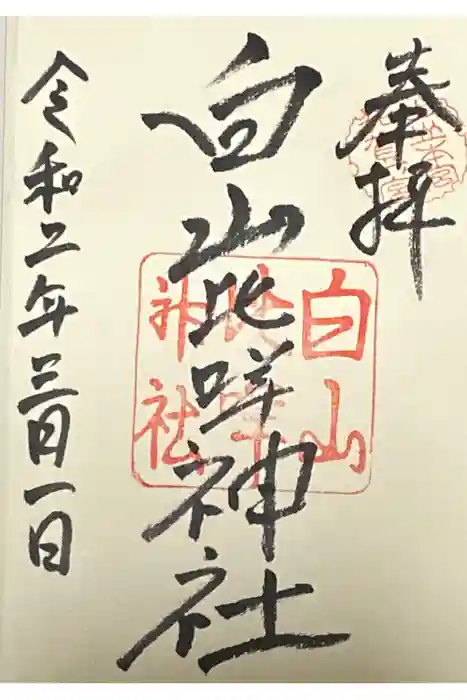 奉拝
白山比咩神社
令和二年三月一日
白山
比咩
神社